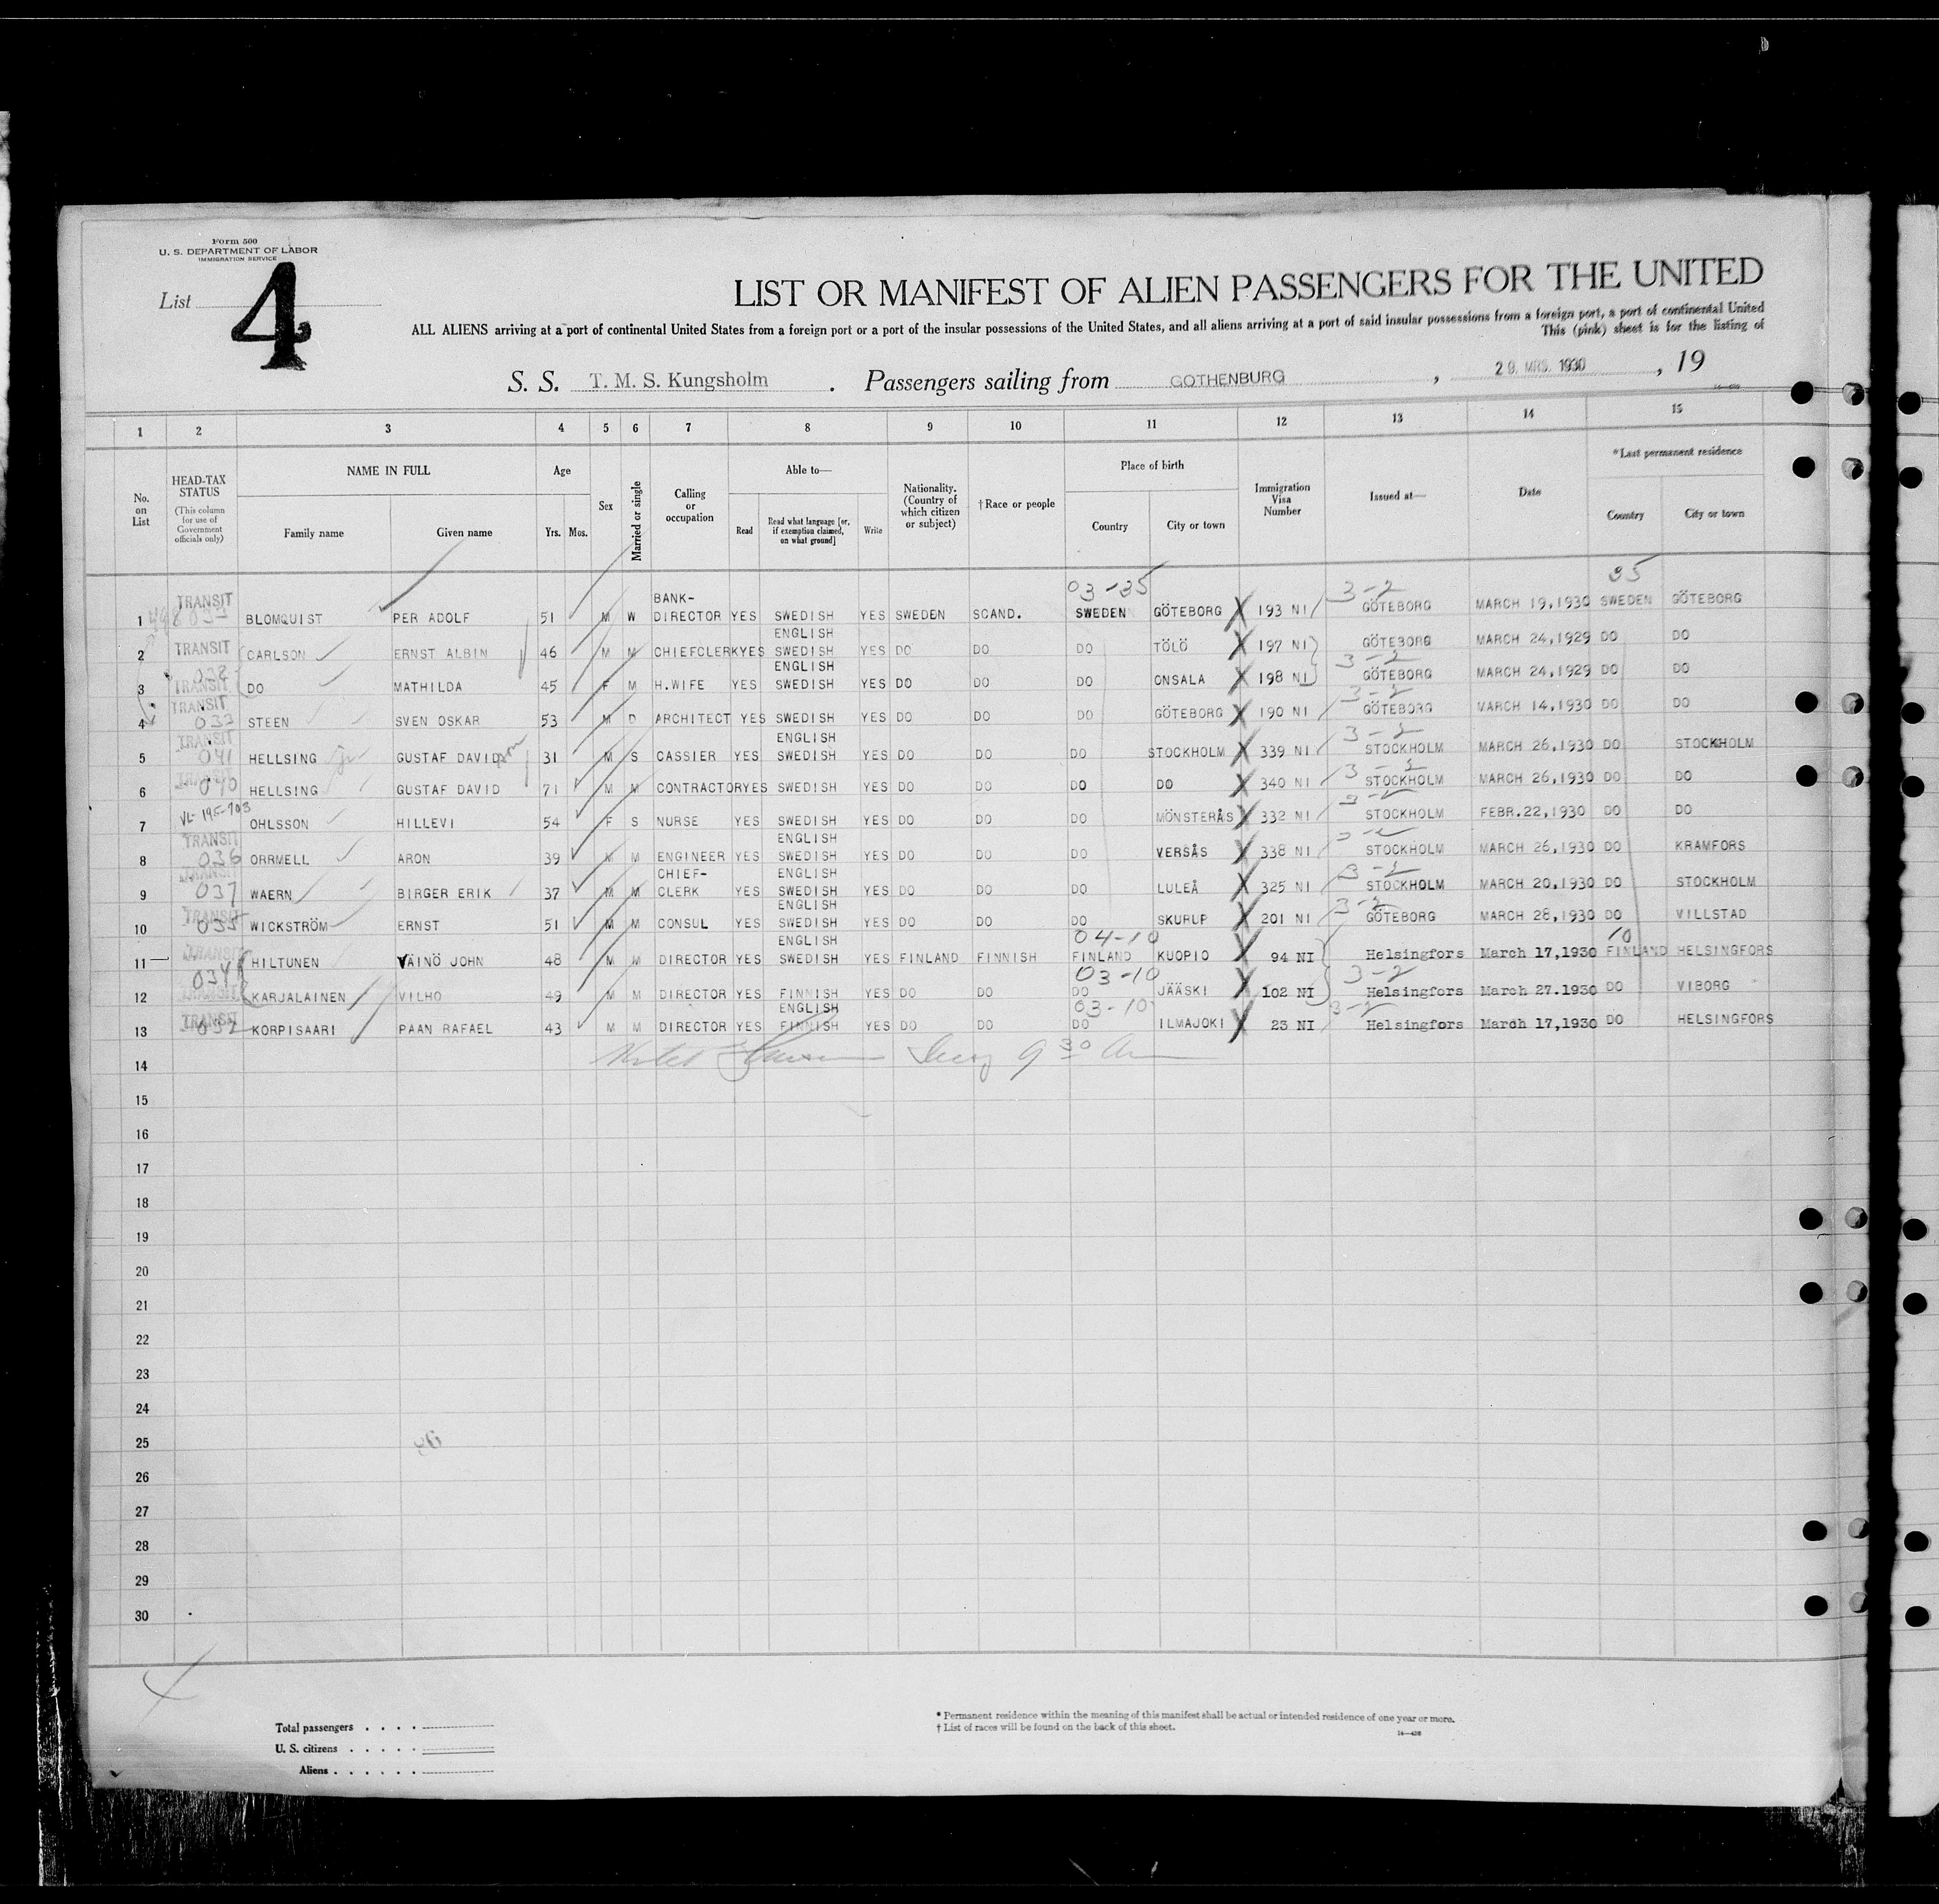 Form 500
U. S. DEPARTMENT OF LABOR
IMMIGRATION SERVICE
List 4
LIST OR MANIFEST OF ALIEN PASSENGERS FOR THE UNITED
ALL ALIENS arriving at a port of continental United States from a foreign port or a port of the insular possessions of the United States, and all aliens arriving at a port of said insular possessions from a foreign port, a port of continental United
This (pink) sheet is for the listing of
S. S. T. M. S. Kungsholm . Passengers sailing from GOTHENBURG , 29. MRS. 1930 , 19
1 2 3 4 5 6 7 8 9 10 11 12 13 14 15
No. on List
HEAD-TAX STATUS (This column for use of Government officials only)
NAME IN FULL Family name Given name
Age Yrs. Mos.
Sex
Married or single
Calling or occupation
Able to— Read Read what language [or, if exemption claimed, on what ground] Write
Nationality. (Country of which citizen or subject)
†Race or people
Place of birth Country City or town
Immigration Visa Number
Issued at—
Date
*Last permanent residence Country City or town
03-35 3-2 35
1 TRANSIT BLOMQUIST PER ADOLF 51 M W BANK-DIRECTOR YES SWEDISH YES SWEDEN SCAND. SWEDEN GÖTEBORG 193 NI GÖTEBORG MARCH 19,1930 SWEDEN GÖTEBORG
2 TRANSIT CARLSON ERNST ALBIN 46 M M CHIEFCLERK YES ENGLISH SWEDISH YES DO DO DO TÖLÖ 197 NI GÖTEBORG MARCH 24,1929 DO DO
3 TRANSIT 038 DO MATHILDA 45 F M H.WIFE YES ENGLISH SWEDISH YES DO DO DO ONSALA 198 NI 3-2 GÖTEBORG MARCH 24,1929 DO DO
4 TRANSIT 033 STEEN SVEN OSKAR 53 M D ARCHITECT YES SWEDISH YES DO DO DO GÖTEBORG 190 NI 3-2 GÖTEBORG MARCH 14,1930 DO DO
5 TRANSIT 041 HELLSING Jr GUSTAF DAVID son 31 M S CASSIER YES ENGLISH SWEDISH YES DO DO DO STOCKHOLM 339 NI 3-2 STOCKHOLM MARCH 26,1930 DO STOCKHOLM
6 040 HELLSING GUSTAF DAVID 71 M M CONTRACTOR YES SWEDISH YES DO DO DO DO 340 NI 3-2 STOCKHOLM MARCH 26,1930 DO DO
7 VL-195-703 OHLSSON HILLEVI 54 F S NURSE YES SWEDISH YES DO DO DO MÖNSTERÅS 332 NI 3-2 STOCKHOLM FEBR.22,1930 DO DO
8 TRANSIT 036 ORRMELL ARON 39 M M ENGINEER YES ENGLISH SWEDISH YES DO DO DO VERSÅS 338 NI 3-2 STOCKHOLM MARCH 26,1930 DO KRAMFORS
9 TRANSIT 037 WAERN BIRGER ERIK 37 M M CHIEF-CLERK YES ENGLISH SWEDISH YES DO DO DO LULEÅ 325 NI 3-2 STOCKHOLM MARCH 20,1930 DO STOCKHOLM
10 TRANSIT 035 WICKSTRÖM ERNST 51 M M CONSUL YES ENGLISH SWEDISH YES DO DO DO SKURUP 201 NI 3-2 GÖTEBORG MARCH 28,1930 DO VILLSTAD
04-10 10
11 TRANSIT HILTUNEN VÄINÖ JOHN 48 M M DIRECTOR YES ENGLISH SWEDISH YES FINLAND FINNISH FINLAND KUOPIO 94 NI Helsingfors March 17,1930 FINLAND HELSINGFORS
03-10
12 034 TRANSIT KARJALAINEN VILHO 49 M M DIRECTOR YES FINNISH YES DO DO DO JÄÄSKI 102 NI 3-2 Helsingfors March 27.1930 DO VIBORG
03-10
13 TRANSIT 032 KORPISAARI PAAN RAFAEL 43 M M DIRECTOR YES ENGLISH FINNISH YES DO DO DO ILMAJOKI 23 NI 3-2 Helsingfors March 17,1930 DO HELSINGFORS
14 9 30 Am
15
16
17
18
19
20
21
22
23
24
25
26
27
28
29
30
Total passengers . . . .
U. S. citizens . . . . .
Aliens . . . . . .
* Permanent residence within the meaning of this manifest shall be actual or intended residence of one year or more.
† List of races will be found on the back of this sheet.